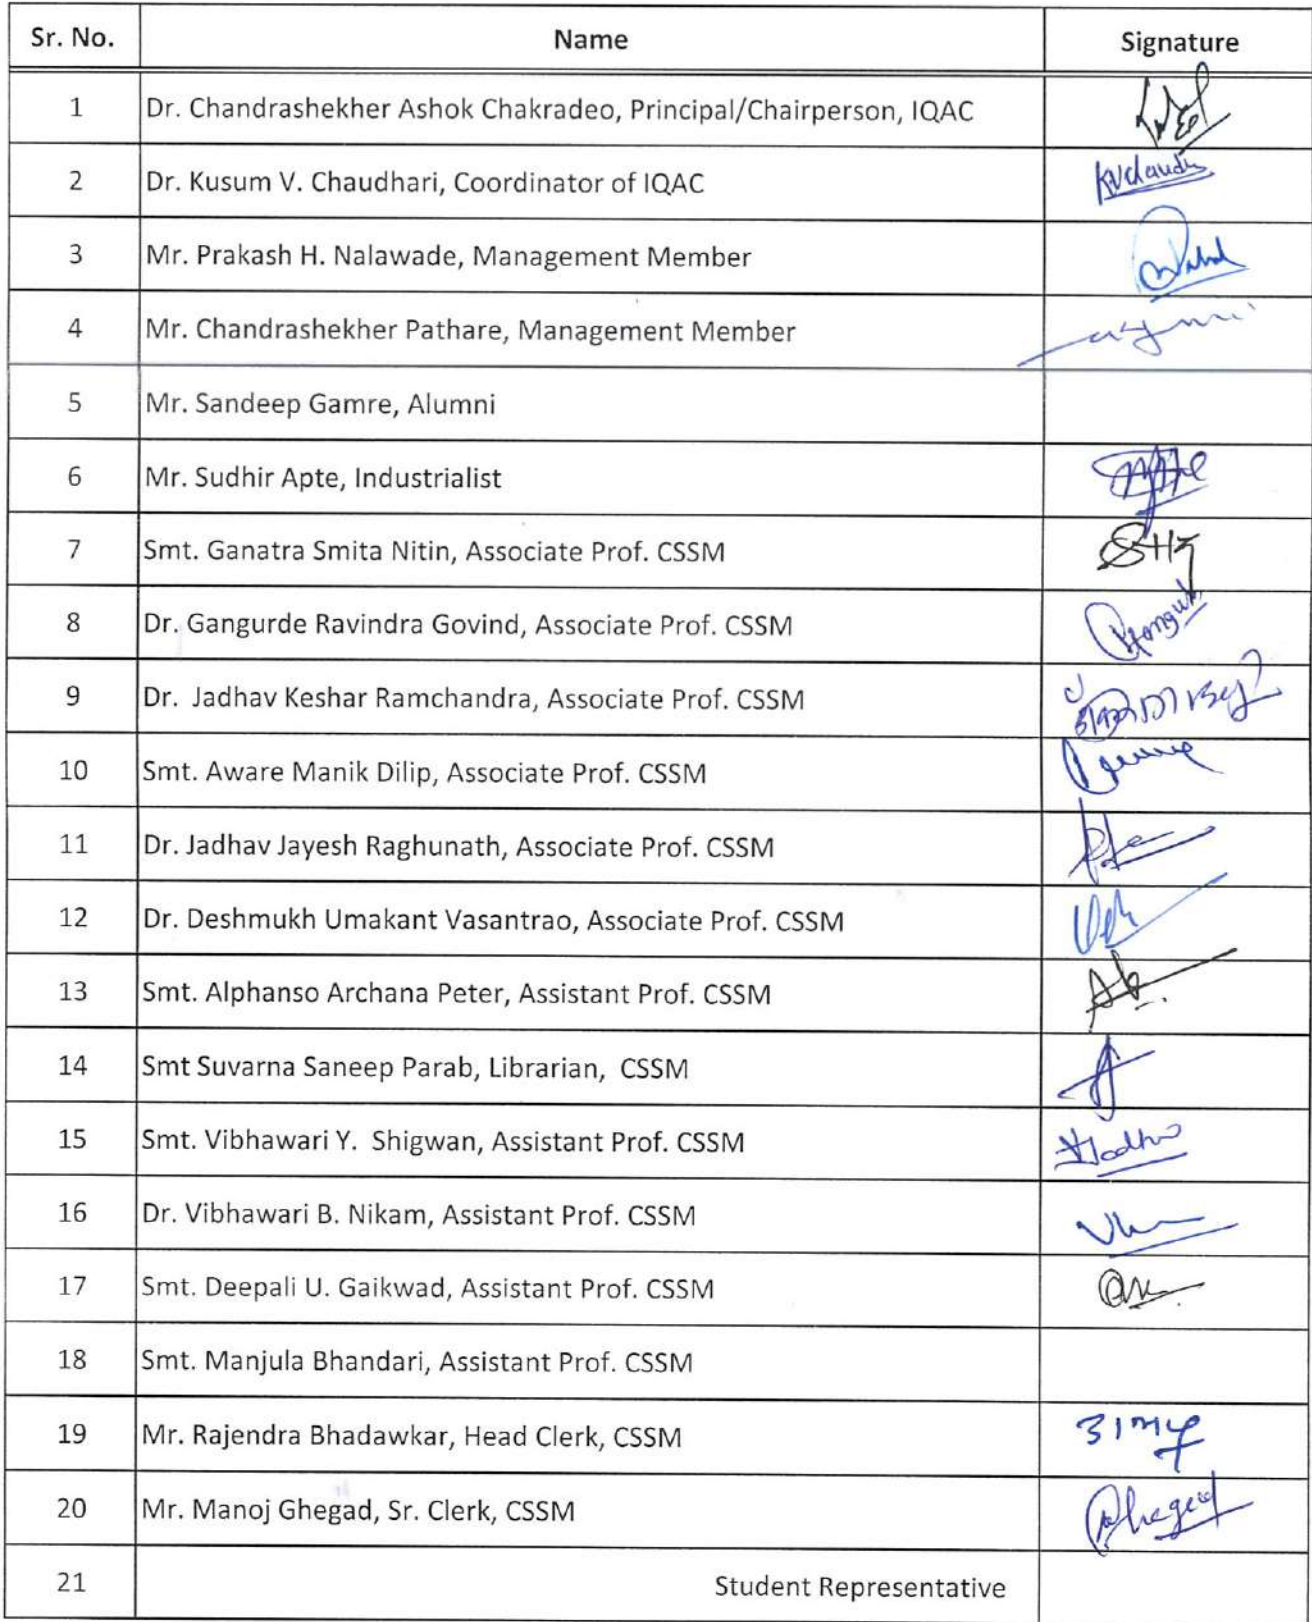 Sr. No. Name Signature
1 Dr. Chandrashekher Ashok Chakradeo, Principal/Chairperson, IQAC
2 Dr. Kusum V. Chaudhari, Coordinator of IQAC
3 Mr. Prakash H. Nalawade, Management Member
4 Mr. Chandrashekher Pathare, Management Member
5 Mr. Sandeep Gamre, Alumni
6 Mr. Sudhir Apte, Industrialist
7 Smt. Ganatra Smita Nitin, Associate Prof. CSSM
8 Dr. Gangurde Ravindra Govind, Associate Prof. CSSM
9 Dr. Jadhav Keshar Ramchandra, Associate Prof. CSSM
10 Smt. Aware Manik Dilip, Associate Prof. CSSM
11 Dr. Jadhav Jayesh Raghunath, Associate Prof. CSSM
12 Dr. Deshmukh Umakant Vasantrao, Associate Prof. CSSM
13 Smt. Alphanso Archana Peter, Assistant Prof. CSSM
14 Smt Suvarna Saneep Parab, Librarian, CSSM
15 Smt. Vibhawari Y. Shigwan, Assistant Prof. CSSM
16 Dr. Vibhawari B. Nikam, Assistant Prof. CSSM
17 Smt. Deepali U. Gaikwad, Assistant Prof. CSSM
18 Smt. Manjula Bhandari, Assistant Prof. CSSM
19 Mr. Rajendra Bhadawkar, Head Clerk, CSSM
20 Mr. Manoj Ghegad, Sr. Clerk, CSSM
21 Student Representative